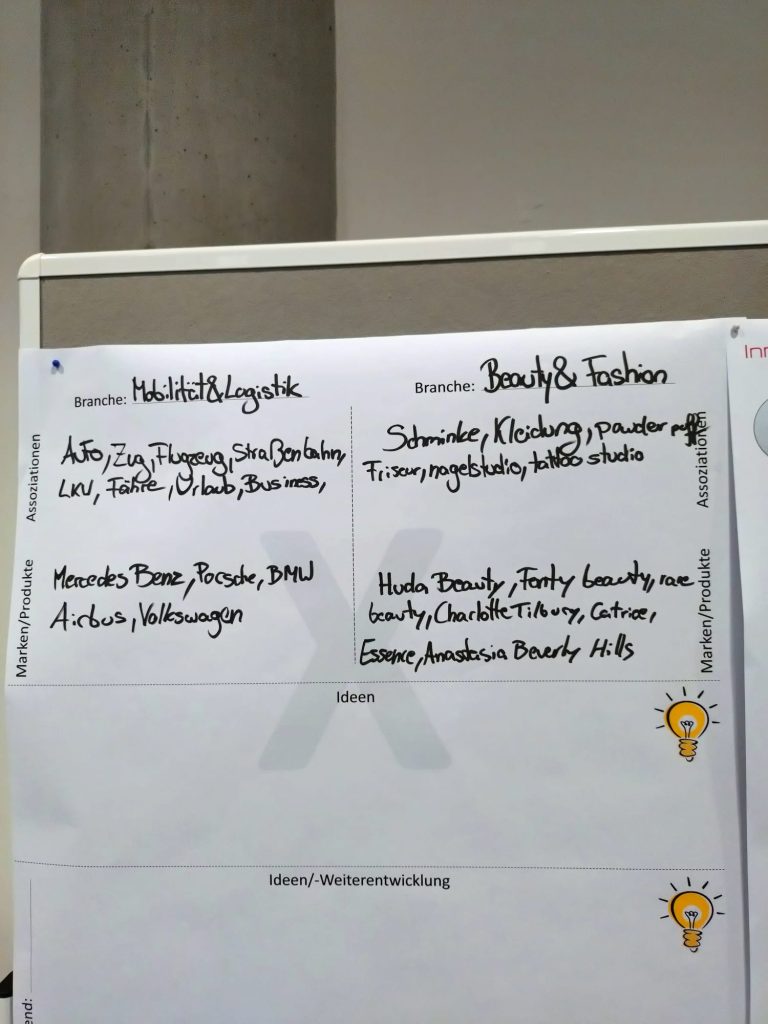 Branche: Mobilität&Logistik
Assoziationen
Auto, Zug, Flugzeug, Straßenbahn,
LKW, Fähre, Urlaub, Business,
Marken/Produkte
Mercedes Benz, Porsche, BMW
Airbus, Volkswagen
Branche: Beauty& Fashion
Assoziationen
Schminke, Kleidung, powder puff
Friseur, nagelstudio, tattoo studio
Marken/Produkte
Huda Beauty, Fenty beauty, rare
beauty, Charlotte Tilbury, Catrice,
Essence, Anastasia Beverly Hills
X
Ideen
Ideen/-Weiterentwicklung